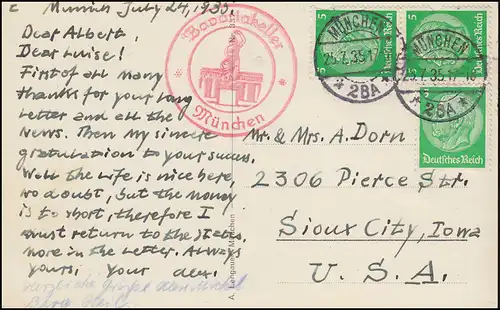 Munich July 24, 1935.
Dear Albert,
Dear Luise!
First of all many
thanks for your long
letter and all the
News. Then my sincere
gratulation to your succes.
Well the life is nice here,
no doubt, but the money
is to short, therefore I
must return to the States.
More in the letter. Always
yours, your
Herzliche Grüße
Bavariakeller
München
A. Lengauer, München
5
Deutsches Reich
5
Deutsches Reich
Deutsches Reich
MÜNCHEN
25.7.35.17
* 2BA *
MÜNCHEN
25.7.35.17-18
* 2BA *
Mr. & Mrs. A. Dorn
2306 Pierce Str.
Sioux City, Iowa
U. S. A.